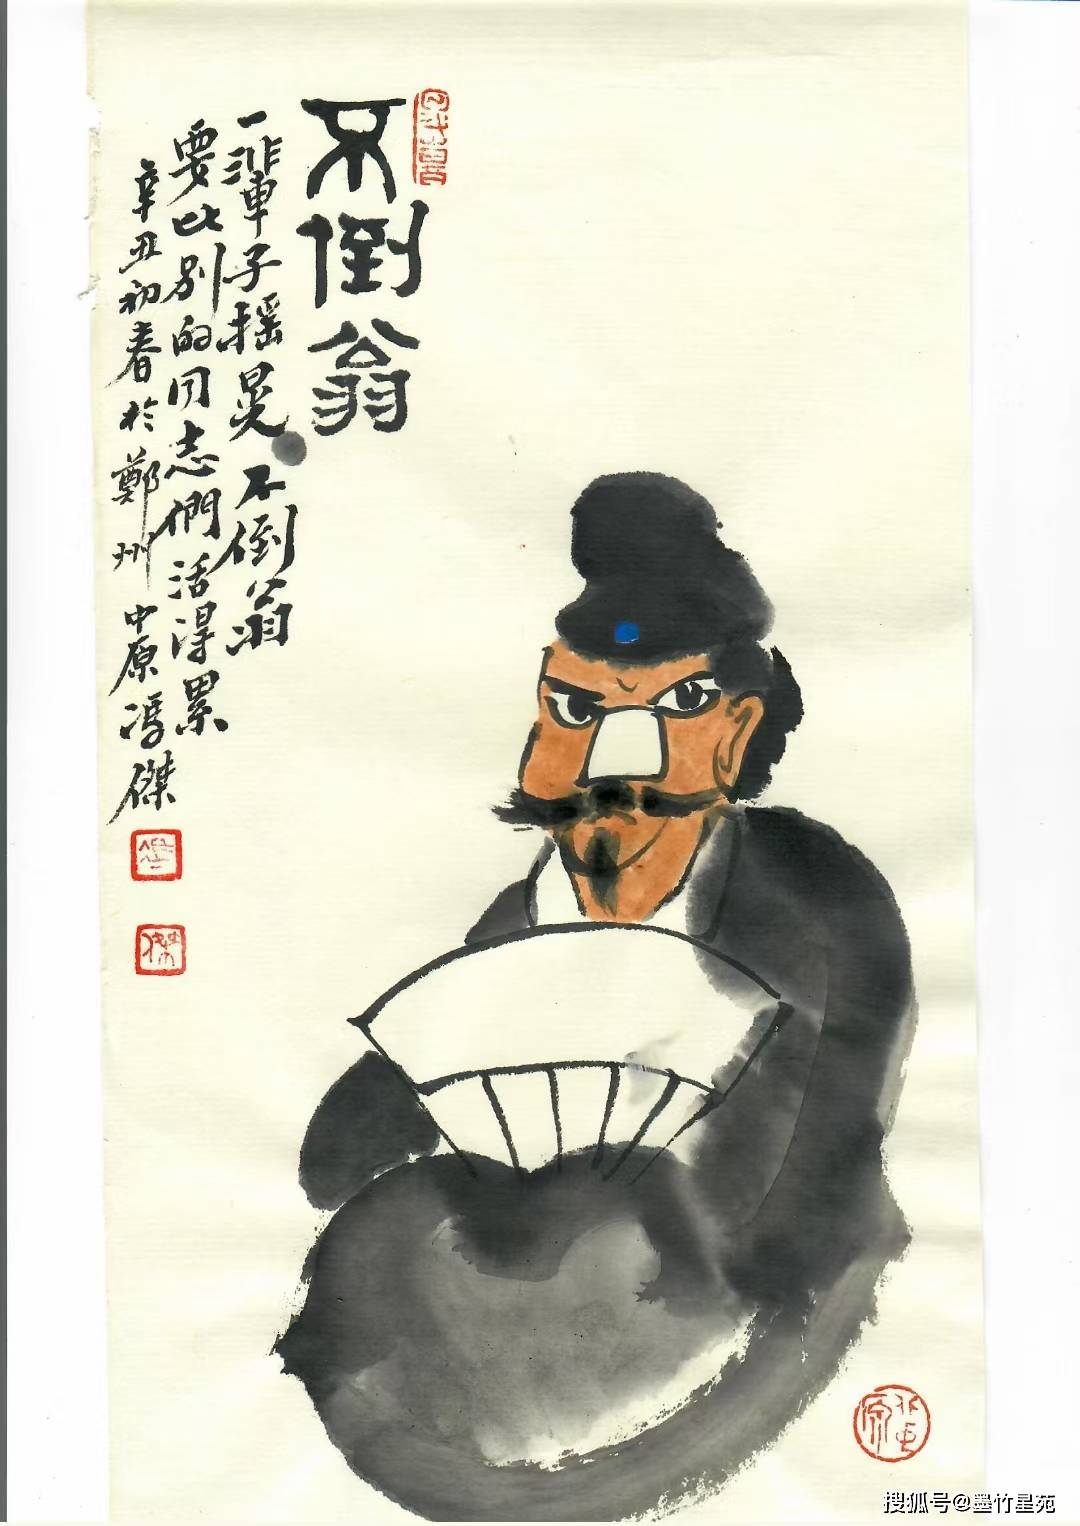 不倒翁
一輩子摇晃不倒翁
要比别的同志們活得累
辛丑初春於鄭州中原馮傑
傑
搜狐号@墨竹星苑